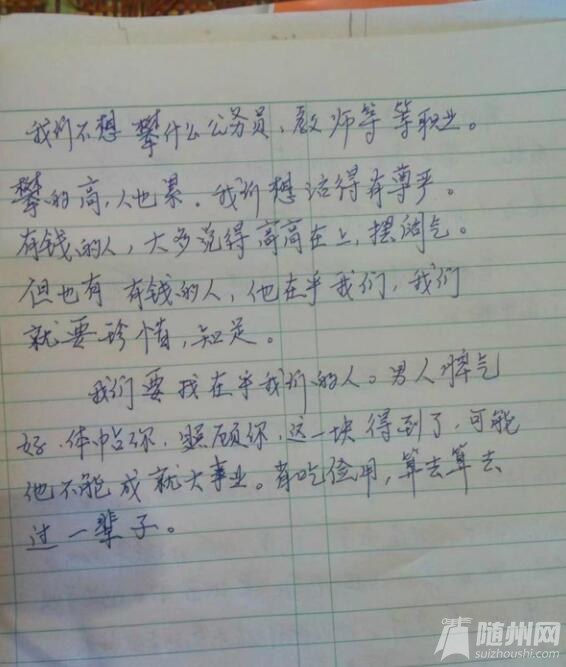 我们不想攀什么公务员,教师等等职业。
攀的高,人也累。我们想活得有尊严。
有钱的人,大多说得高高在上,摆阔气。
但也有有钱的人,他在乎我们,我们
就要珍惜,知足。
我们要找在乎我们的人。男人脾气
好.体帖你.照顾你.这一块得到了.可能
他不能成就大事业。省吃俭用,算去算去
过一辈子。
随州网
suizhoushi.com